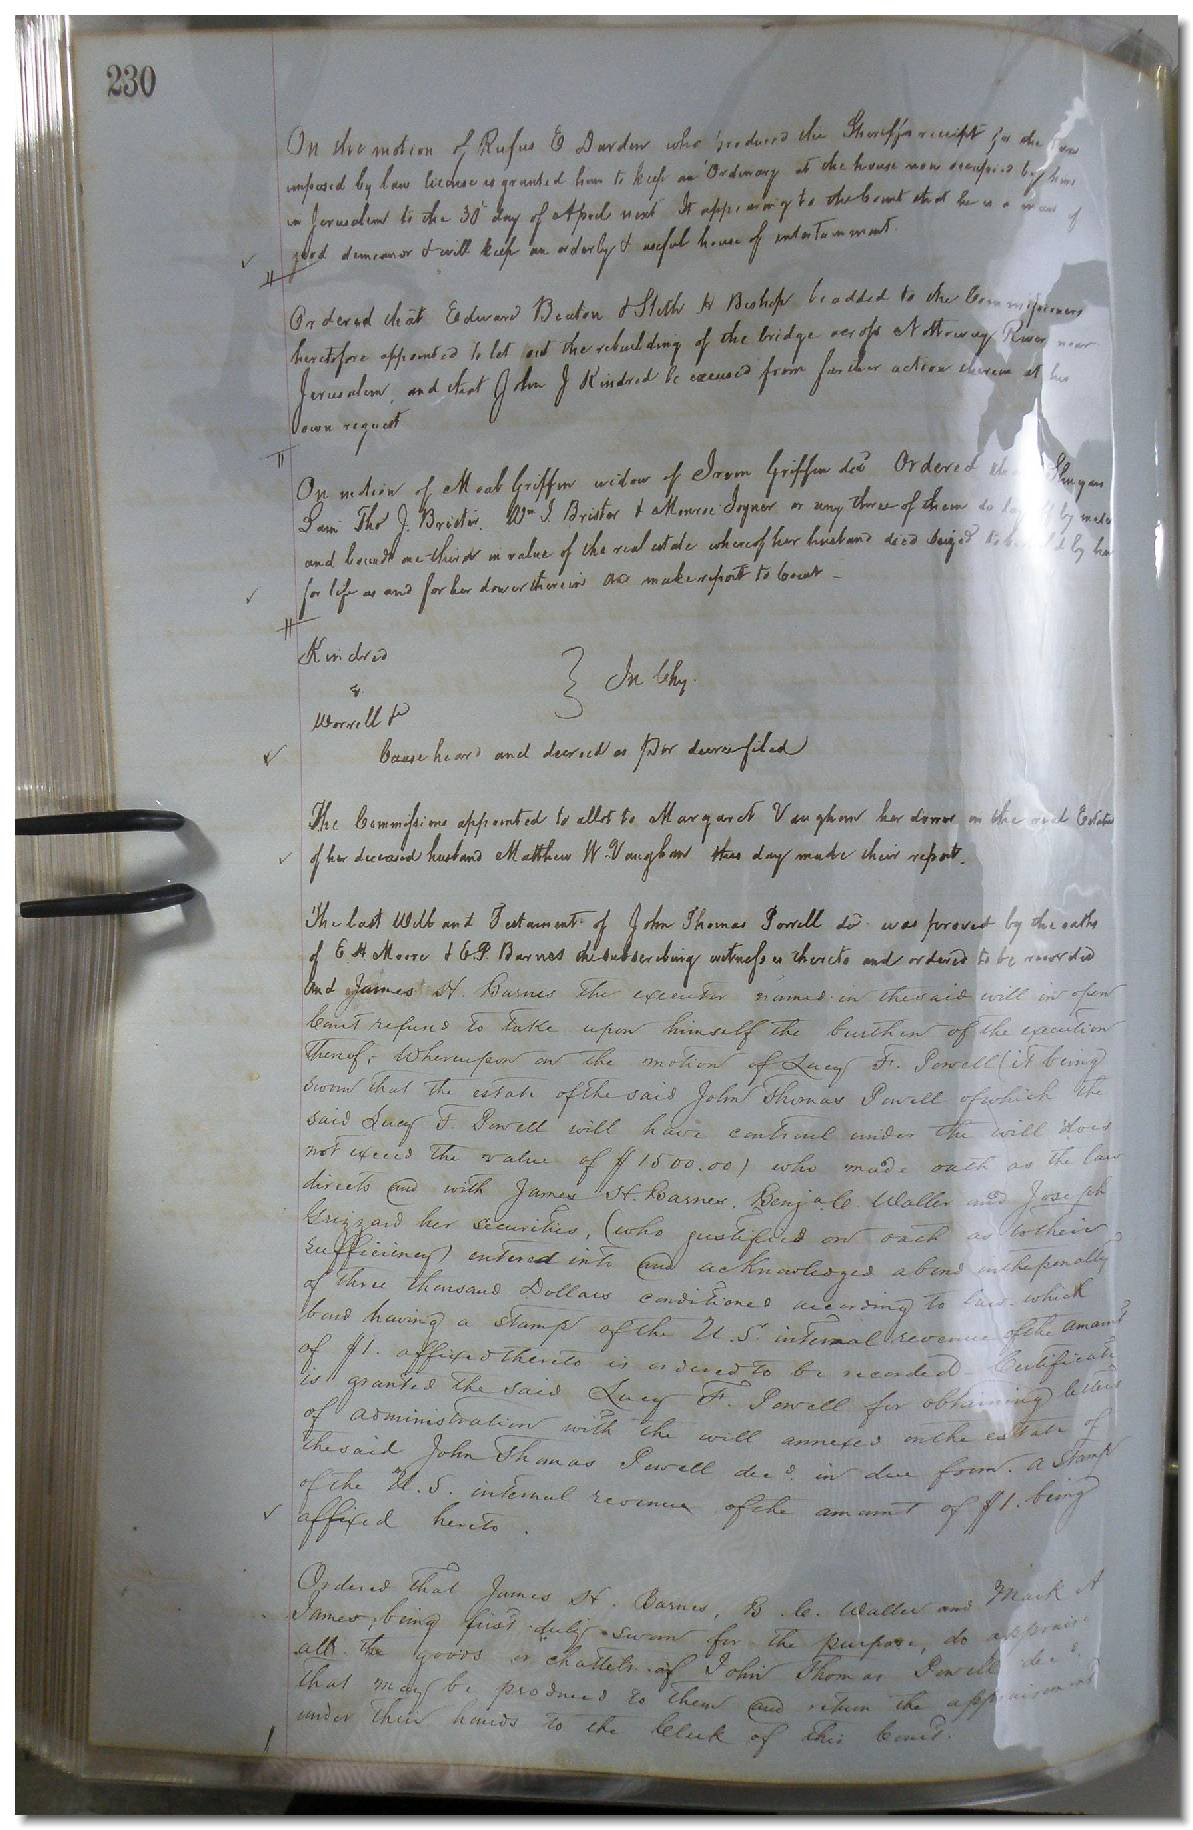 230
On the motion of Rufus E Darden who produced the Sheriffs receipt for the tax
imposed by law license is granted him to keep an Ordinary at the house now occupied by him
in Jerusalem to the 30 day of April next It appearing to the Court that he is a man of
good demeanor & will keep an orderly & useful house of entertainment.
Ordered that Edward Beaton & Sleth H Bishop be added to the Commissioners
heretofore appointed to let out the rebuilding of the bridge across Nottoway River near
Jerusalem, and that John J Kindred be excused from further action therein at his
own request
On motion of Moab Griffin widow of Irvin Griffin decd Ordered that
Lain Tho J. Bristor. Wm J. Bristor & Monroe Joyner or any three of them do lay off by metes
and bounds one third in value of the real estate whereof her husband died seized to be held by her
for life as and for her dower therein and make report to Court -
Kindred
&
Worrell &c
} In Chy.
Cause heard and decreed as per decree filed
The Commissions appointed to allot to Margaret Vaughan her dower in the real Estate
of her deceased husband Matthew W. Vaughan this day made their report.
The last Will and Testament of John Thomas Powell dec was proved by the oaths
of E H Moore & E.P. Barnes the subscribing witnesses thereto and ordered to be recorded
and James H. Barnes the executor named in the said will in open
Court refused to take upon himself the burthen of the execution
thereof; Whereupon on the motion of Lucy F. Powell (it being
sworn that the estate of the said John Thomas Powell of which the
said Lucy F. Powell will have controul under the will does
not exceed the value of $1500.00) who made oath as the law
directs and with James H. Barnes, Benja C. Waller and Joseph
Grizzard her securities, (who justified on oath as to their
sufficiency) entered into and acknowledged a bond in the penalty
of three thousand Dollars conditioned according to law. which
bond having a stamp of the U.S. internal revenue of the amount
of $1. affixed thereto is ordered to be recorded - Certificate
is granted the said Lucy F. Powell for obtaining letters
of administration with the will annexed on the estate of
the said John Thomas Powell decd. in due form. a stamp
of the U.S. internal revenue of the amount of $1. being
affixed hereto.
Ordered that James H. Barnes, B. C. Waller and Mark A
James, being first duly sworn for the purpose, do appraise
all the goods or chattels of John Thomas Powell decd.
that may be produced to them and return the appraisement
under their hands to the Clerk of this Court.